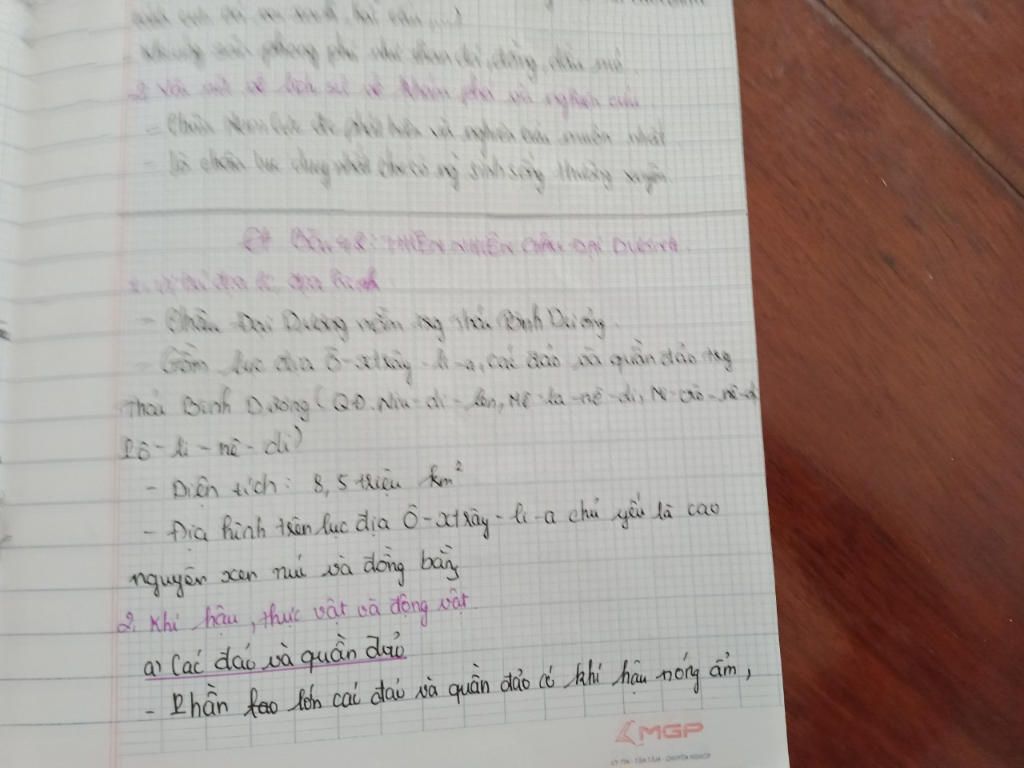 - khoáng sản phong phú như than đá, đồng, dầu mỏ
2. Vài nét về lịch sử về khám phá và nghiên cứu
- Châu Nam Cực đc phát hiện và nghiên cứu muộn nhất
- là châu lục duy nhất chưa có ng sinh sống thường xuyên.
Bài 48: THIÊN NHIÊN CHÂU ĐẠI DƯƠNG
1. Vị trí địa lí, địa hình
- Châu Đại Dương nằm trg Thái Bình Dương.
- Gồm lục địa Ô-xtrây-li-a, các đảo và quần đảo trg
Thái Bình Dương (QĐ. Niu-di-len, Mê-la-nê-di, Mi-crô-nê-di
Pô-li-nê-di)
- Diện tích: 8,5 triệu km²
- Địa hình trên lục địa Ô-xtrây-li-a chủ yếu là cao
nguyên xen núi và đồng bằng
2. Khí hậu, thực vật và động vật
a) Các đảo và quần đảo
- Phần lớn các đảo và quần đảo có khí hậu nóng ẩm,
MGP